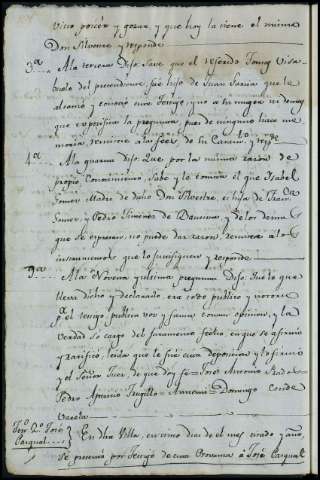 vieo poseer y gozar, y que hoy la tiene el mismo
Don Silvestre y responde
3ª A la tercera Dijo: Save que el referido Tomas Visa-
buelo del pretendiente, fue hijo de Juan el que le
alcanzó y conoció este Testigo, y no a su muger ni demas
que expresa la pregunta, pues de ninguno hace me-
moria, remitese a las fees de su y responde
4ª A la quarta Dijo: Que por la misma razon de
propio Conocimiento Sabe y le consta el que Isabel
Madre de dicho Don Silvestre, es hija de Fran.co
y Pedro Ximenes de y de los demas
que se expresan no puede dar razon, remitese a los
instrumentos que lo justifiquen y responde
9ª A la Novena y ultima pregunta Dijo: Que todo lo que
lleva dicho y declarado, es todo publico y notorio
p.r el tengo publica vos y fama comun opinion, y la
Verdad so cargo del Juramento fecho, en que se afirmó
y ratificó, leidole que le fué esta deposicion y lo firmó
y el Señor Juez, de que doy fe = Josef Antonio
Pedro Aparicio Trugillo = Antemi = Domingo Conde
Varela
Tes.go 2.o José
Pasqual En dha Villa, en
 dia de el mes citado y año,
se presentó por Testigo de esta Provanza a José Pasqual